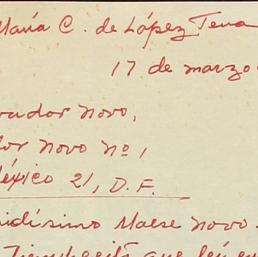 María C. de López Tena
17 de marzo
vador Novo,
or Novo nº 1
éxico 21, D.F.
idísimo Maese Novo
que leí